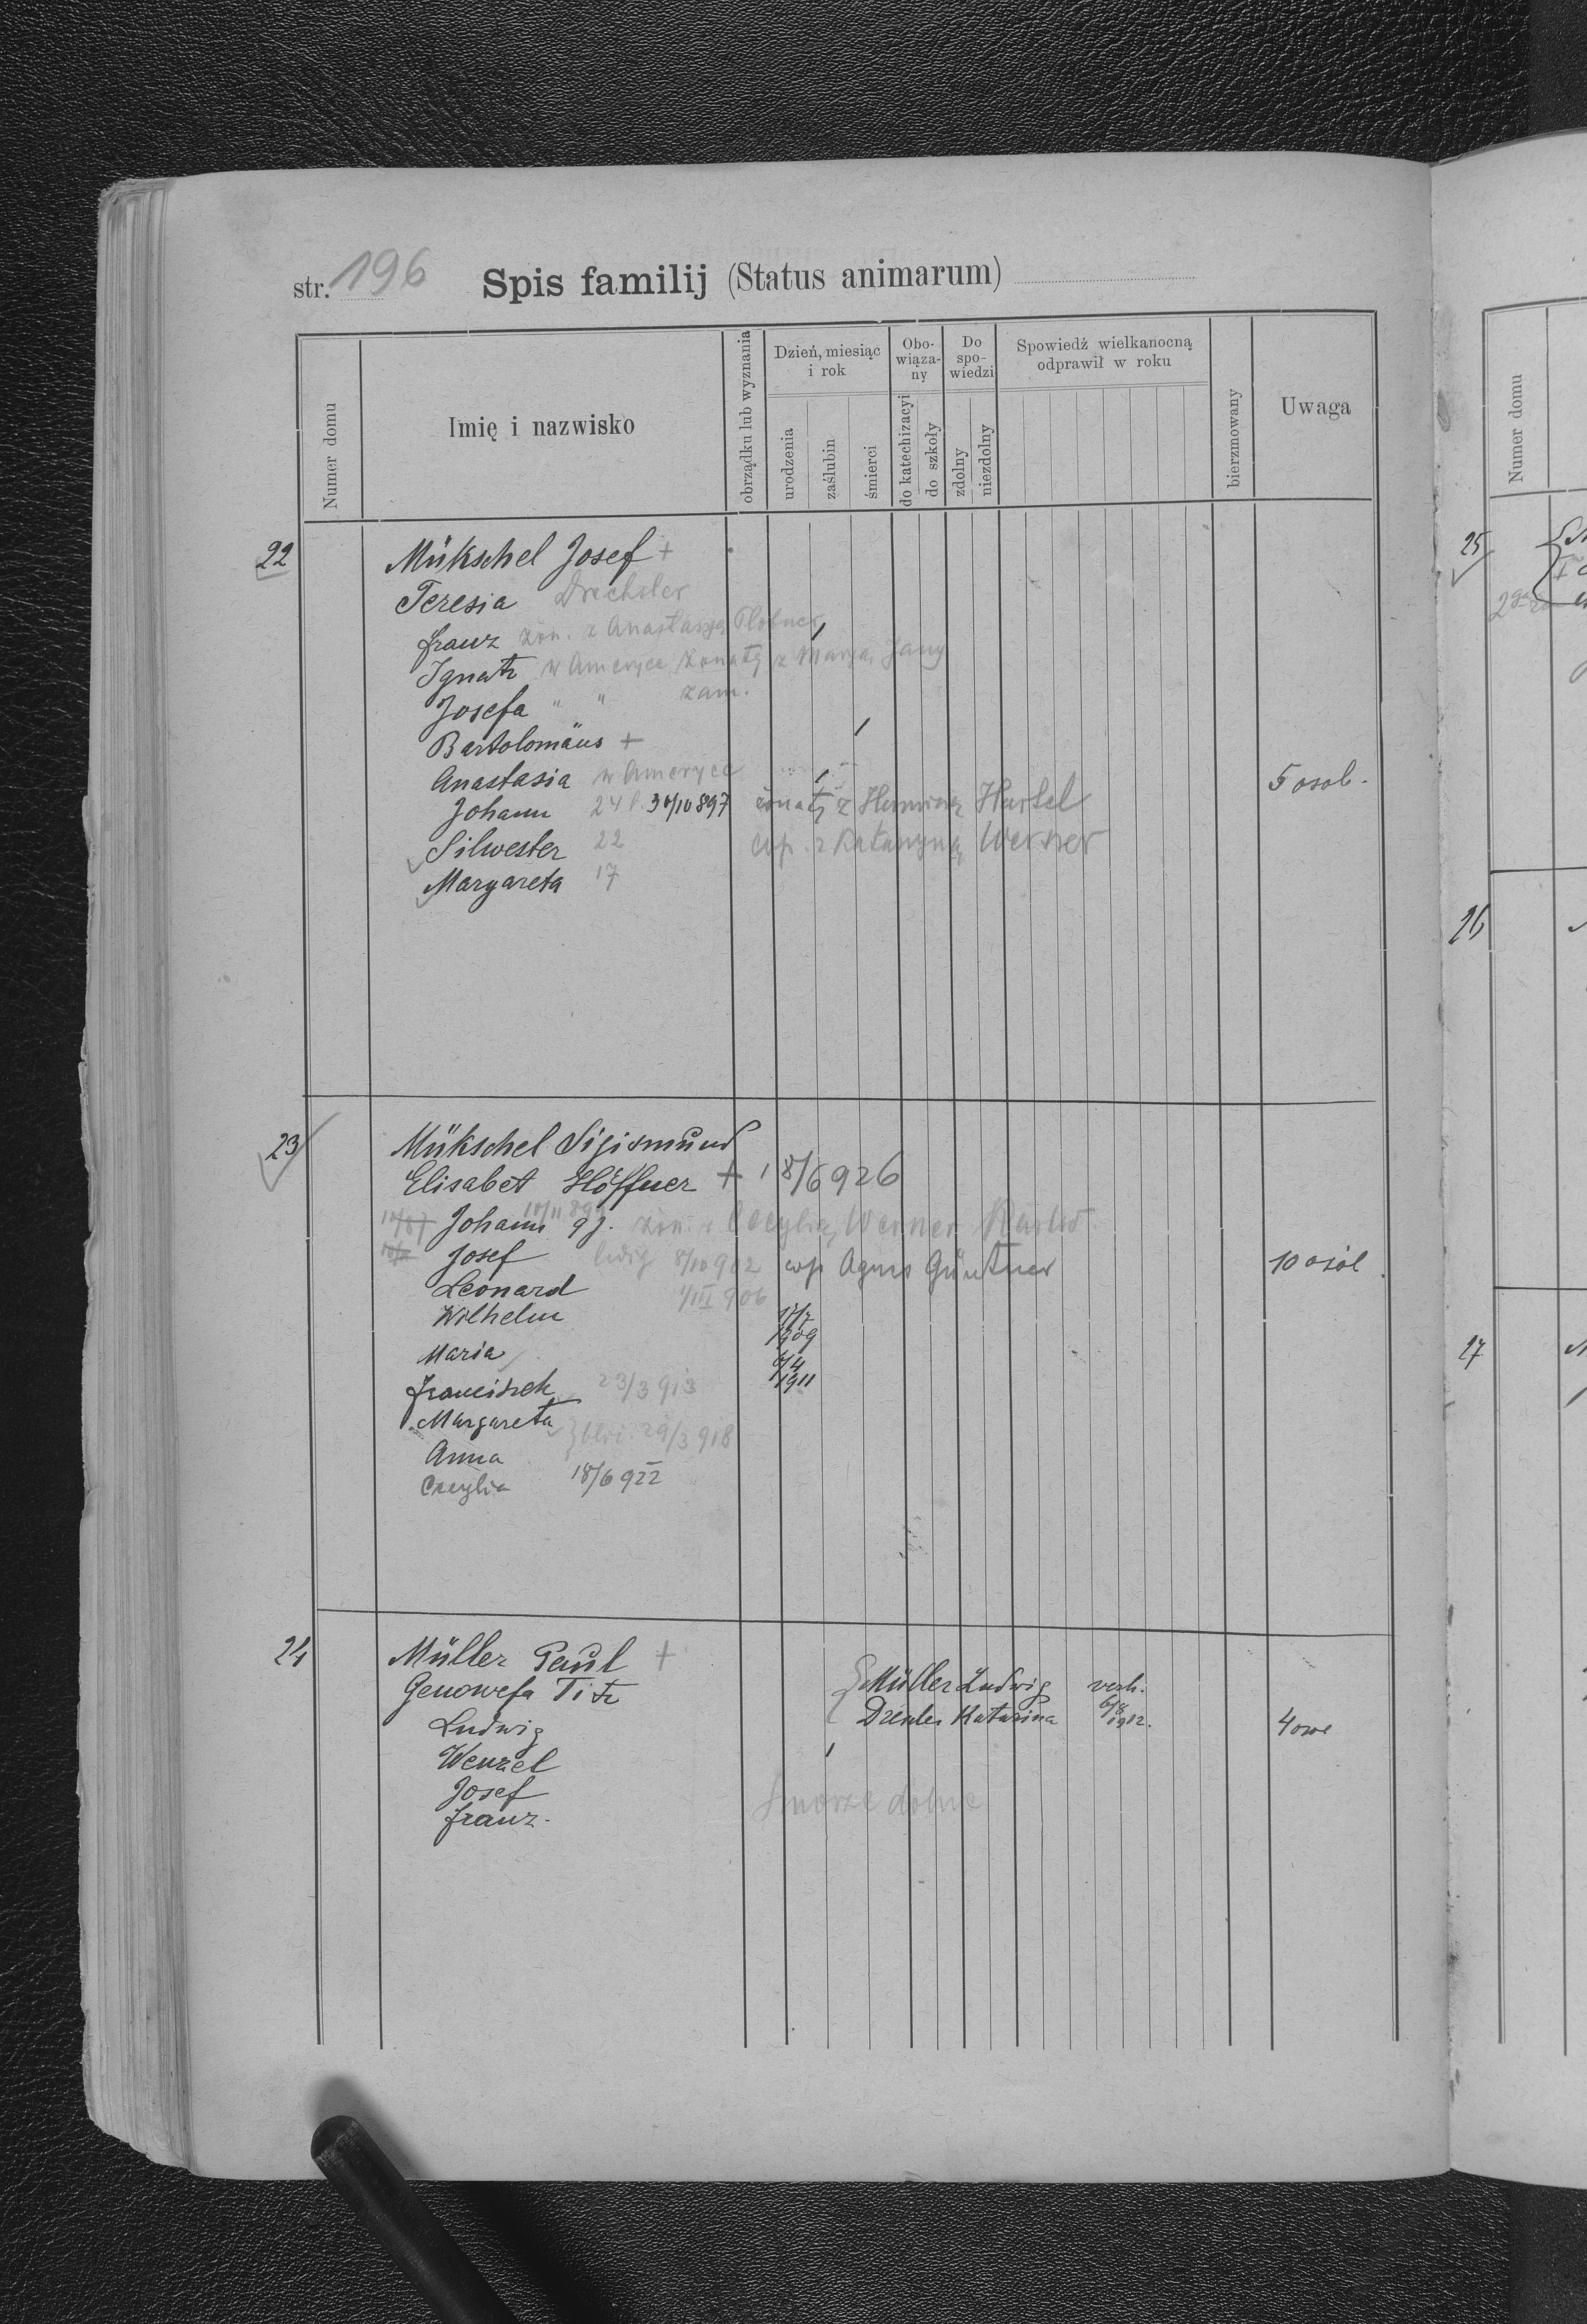 str. 196 Spis familij (Status animarum)
Numer domu
Imię i nazwisko
obrządku lub wyznania
Dzień, miesiąc i rok
urodzenia
zaślubin
śmierci
Obowiązany
do katechizacyi
do szkoły
Do spowiedzi
zdolny
niezdolny
Spowiedź wielkanocną odprawił w roku
bierzmowany
Uwaga
22 Mükschel Josef +
Teresia Drechsler
Franz żon. z Anastasyą
Ignatz w Ameryce żonaty z Maryą Jany
Josefa " " zam.
Bartolomäus +
Anastasia w Ameryce 5 osob.
Johann 24 l. 30/10 897 żonaty z Hartel
Silwester 22 cop. z Katarzyną Werner
Margareta 17
23 Mükschel Sigismund
Elisabet Höffner + 18/6 926
Johann 9 j. żon. z Cecylią Werner
Josef 8/10 902 cop. Agnes Güntner 10 osób
Leonard 1/III 906
Wilhelm 17/7 1909
Maria 6/4 1911
Franciszek 23/3 913
Margareta
Anna } bliź. 29/3 918
Cecylia 18/6 922
24 Müller Paul +
Genowefa Titz { Müller Ludwig verh.
Ludwig Katarina 6/8 1912. 4
Wenzel
Josef
Franz.
Numer domu
25
26
27